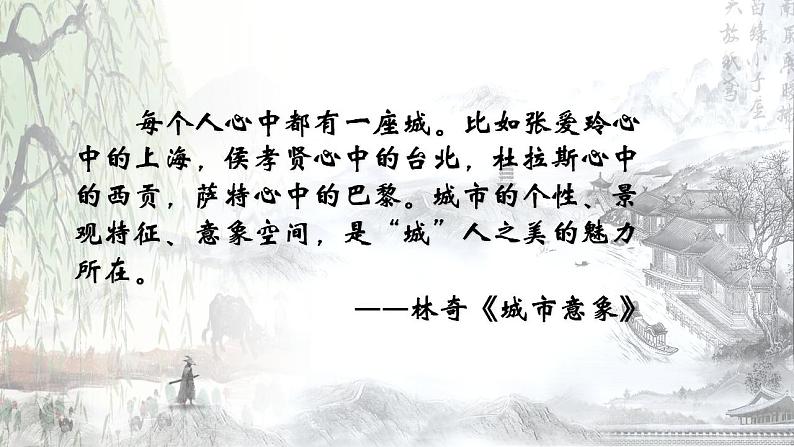 每个人心中都有一座城。比如张爱玲心
中的上海，侯孝贤心中的台北，杜拉斯心中
的西贡，萨特心中的巴黎。城市的个性、景
观特征、意象空间，是“城”人之美的魅力
所在。
——林奇《城市意象》